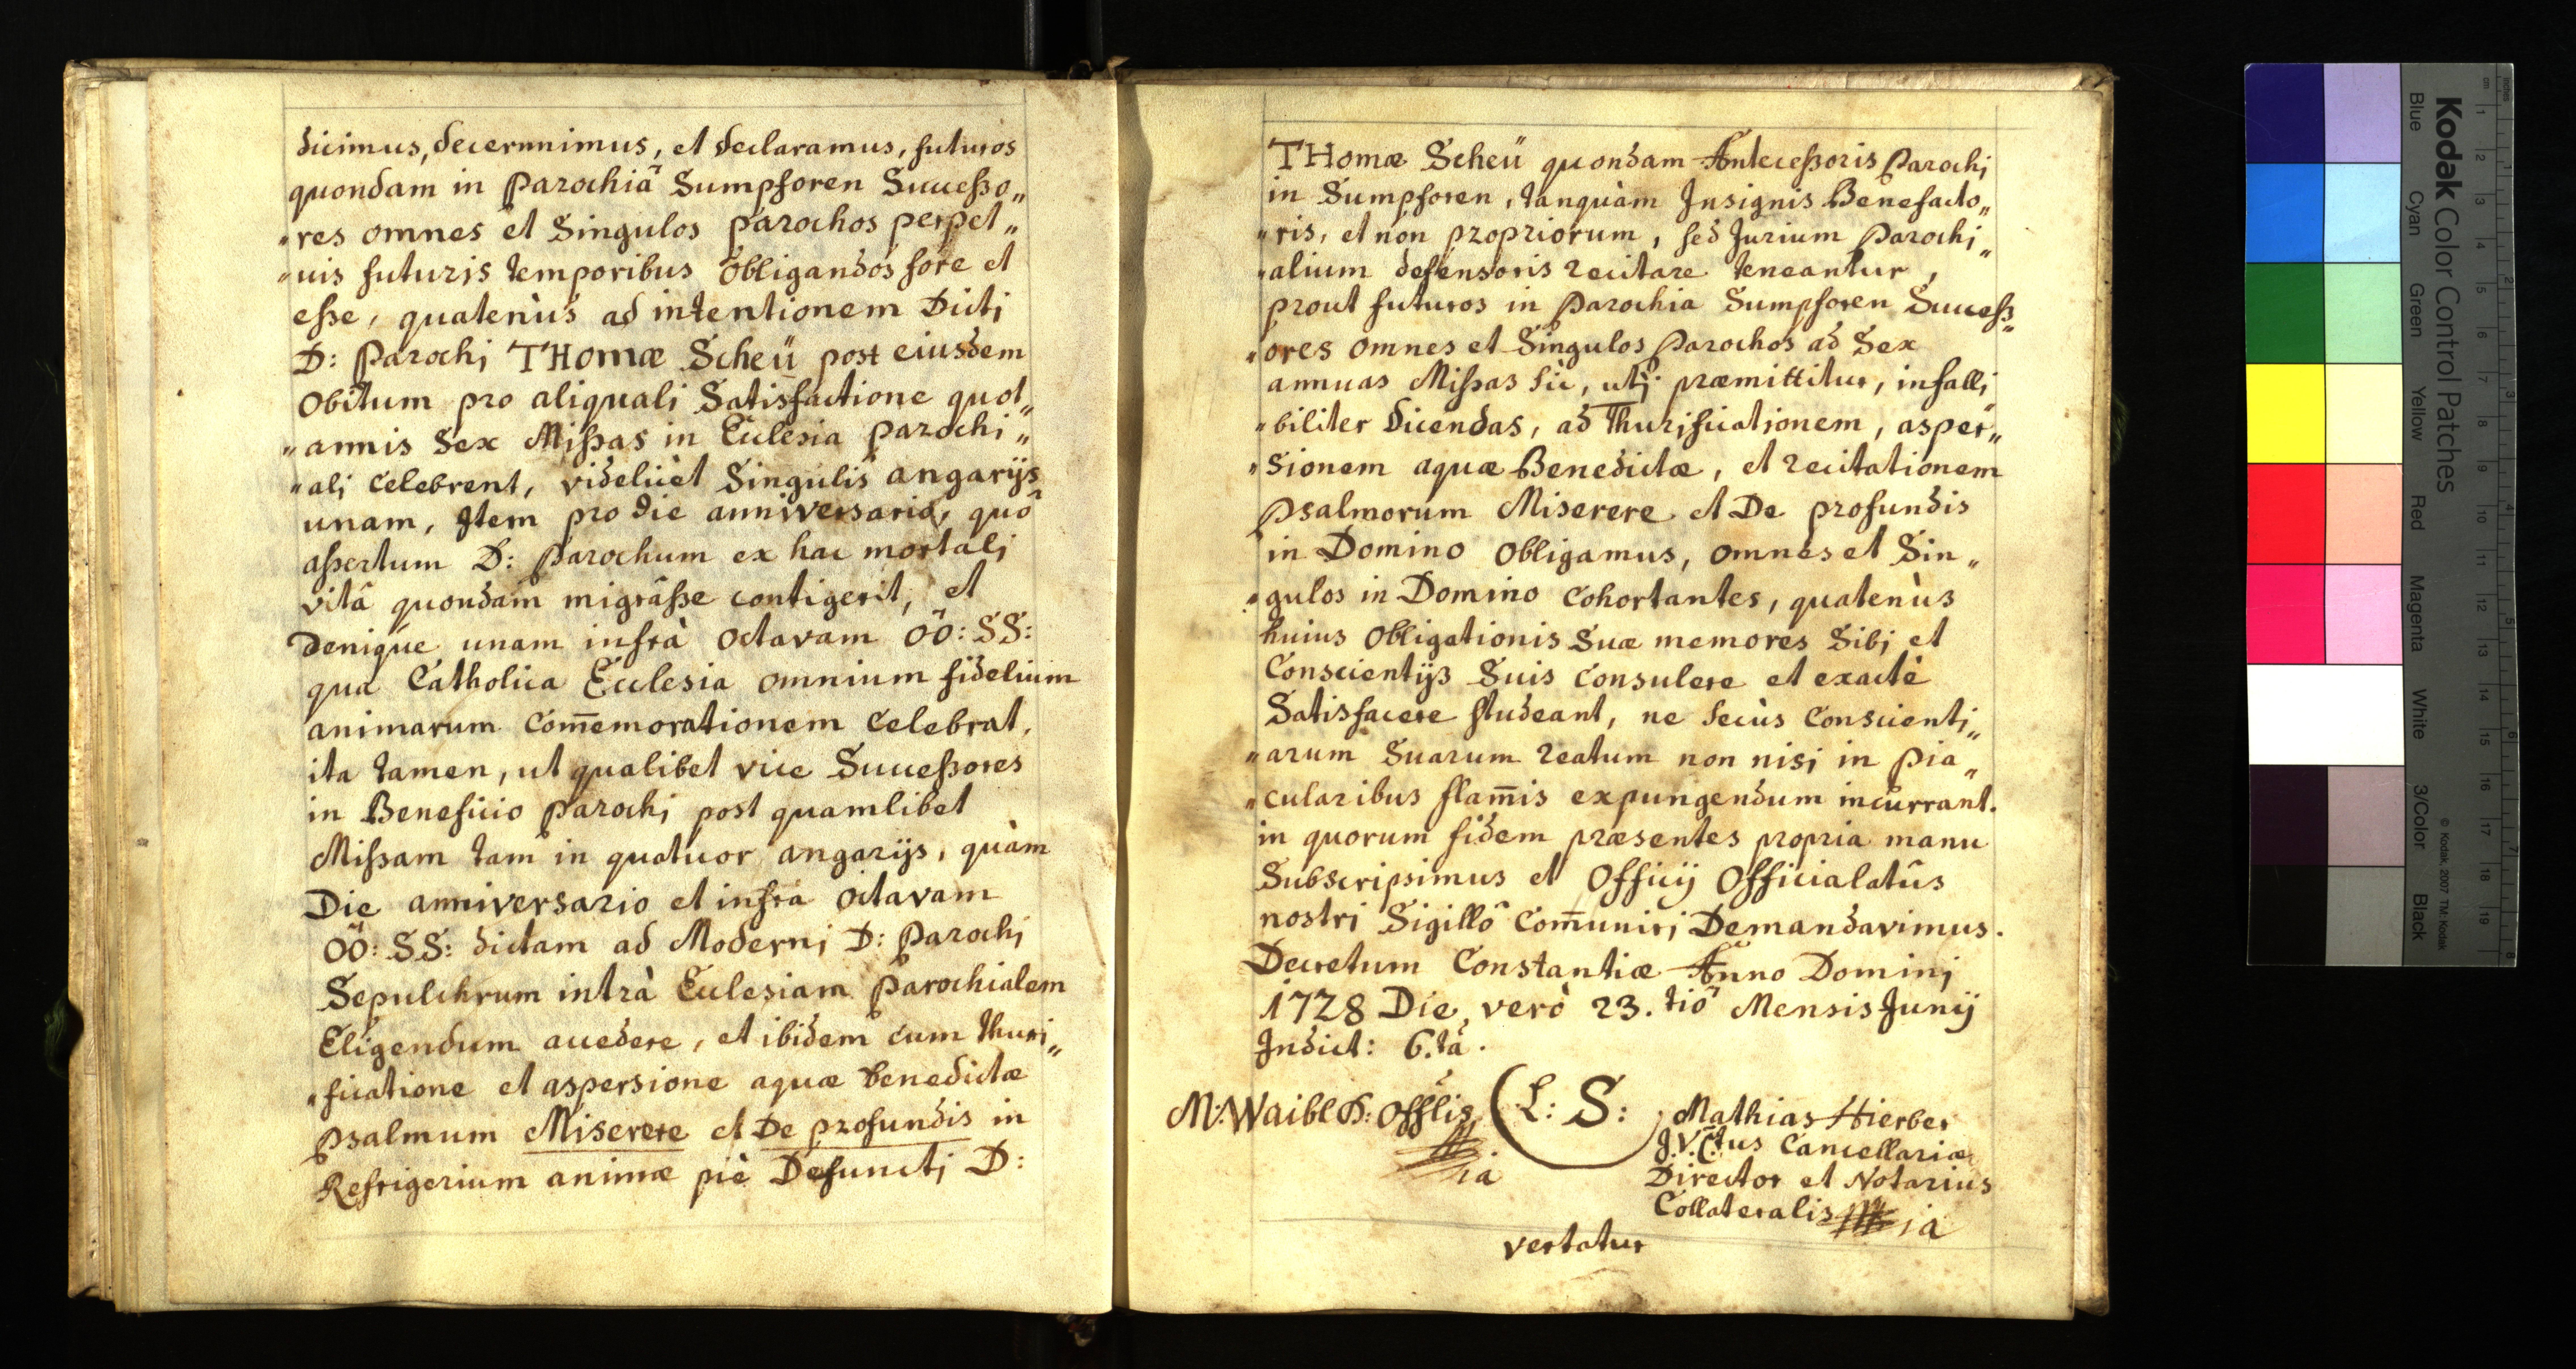 dicimus, decernnimus, et declaramus, futuros
quondam in Parochiâ Sumpforen Succeßo„
„res omnes et Singulos parochos perpet„
„uis futuris temporibus obligandos fore et
eße, quatenùs ad intentionem Dicti
D: Parochj THomæ Scheü post eiusdem
Obitum pro aliqualj Satisfactione quot„
„annis Sex Mißas in Ecclesia parochi„
„alj celebrent, videlicèt Singulis angarijs
unam, Item pro die anniversariô, quô
aßertum D: Parochum ex hac mortalj
vitâ quondam migrâße contigerit, et
Denique unam infrà octavam ÖÖ: SS:
qua Catholica Ecclesia omnium fidelium
animarum Com̄emorationem celebrat,
ita tamen, ut qualibet vice Succeßores
in Beneficio parochj post quamlibet
Mißam tam in quatuor angarijs, quàm
Die anniversario et infra octavam
ÖÖ: SS: dictam ad Modernj D: Parochj
Sepulchrum intrà Ecclesiam Parochialem
Eligendum accedere, et ibidem cum thuri„
„ficatione et aspersione aquæ benedictæ
psalmum Miserere et De profundis in
Refrigerium animæ piè Defunctj D:
THomæ Scheü quondam Anteceßoris Parochj
in Sumpforen, tanquàm Insignis Benefacto„
„ris, et non propriorum, sed Jurium Parochj„
„alium defensoris recitare teneantur,
prout futuros in Parochia Sumpforen Succeß„
„ores omnes et Singulos Parochos ad Sex
annuas Mißas sic, utj præmittitur, infallj„
„biliter dicendas, ad thurificationem, asper„
„sionem aquæ Benedictæ, et recitationem
Psalmorum Miserere et De profundis
in Domino obligamus, omnes et Sin„
„gulos in Domino cohortantes, quatenùs
huius obligationis suæ memores Sibj et
Conscientijs Suis consulere et exactè
Satisfacere studeant, ne secùs Conscientj„
„arum Suarum reatum non nisj in pia„
„cularibus flam̄is expungendum incurrant.
in quorum fidem præsentes propria manu
Subscripsimus et Officij Officialatûs
nostri Sigillô Com̄unirj Demandavimus.
Decretum Constantiæ Anno Dominj
1728 Die, verò 23. tiô Mensis Junij
Indict: 6.tâ.
M: Waibl D: Offlis
ia
(L: S:)
Mathias Hierber
J.V.Ctus Cancellariæ
Director et Notarius
Collateralis
ia
vertatur
Kodak Color Control Patches
Blue Cyan Green Yellow Red Magenta White 3/Color Black
© Kodak, 2007 TM: Kodak
cm 1 2 3 4 5 6 7 8 9 10 11 12 13 14 15 16 17 18 19
inches 1 2 3 4 5 6 7 8